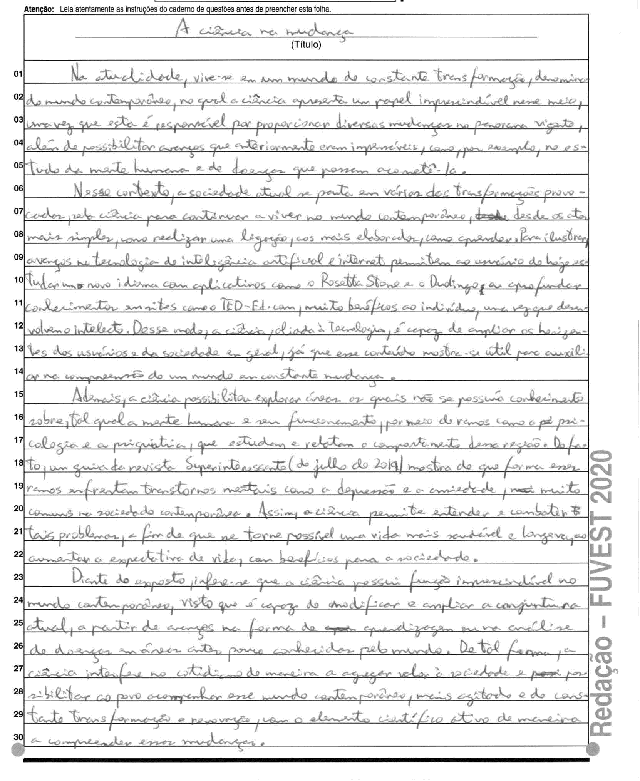 Atenção: Leia atentamente as instruções do caderno de questões antes de preencher esta folha.
A ciência na mudança
(Título)
01 Na atualidade, vive-se em um mundo de constante transformação, denomina
02 do mundo contemporâneo, no qual a ciência apresenta um papel imprescindível nesse meio,
03 uma vez que esta é responsável por proporcionar diversas mudanças no panorama vigente,
04 além de possibilitar avanços que anteriormente eram impensáveis, como, por exemplo, no es-
05 tudo da mente humana e de doenças que possam acometê-la.
06 Nesse contexto, a sociedade atual se pauta em várias das transformações provo-
07 cadas pela ciência para continuar a viver no mundo contemporâneo, desde os atos
08 mais simples, como realizar uma ligação, aos mais elaborados, como aprender. Para ilustrar,
09 avanços na tecnologia de inteligência artificial e internet permitem ao usuário de hoje es-
10 tudar um novo idioma com aplicativos como o Rosetta Stone e o Duolingo, ou aprofundar
11 conhecimentos em sites como o TED-Ed.com, muito benéficos ao indivíduo, uma vez que desen-
12 volvem o intelecto. Desse modo, a ciência, aliada à tecnologia, é capaz de ampliar os horizon-
13 tes dos usuários e da sociedade em geral, já que esse conteúdo mostra-se útil para auxili-
14 ar na compreensão de um mundo em constante mudança.
15 Ademais, a ciência possibilitou explorar áreas as quais não se possuía conhecimento
16 sobre, tal qual a mente humana e seu funcionamento, por meio de ramos como a psi-
17 cologia e a psiquiatria, que estudam e relatam o comportamento dessa região. De fa-
18 to, um guia da revista Superinteressante (de julho de 2019) mostra de que forma esses
19 ramos enfrentam transtornos mentais como a depressão e a ansiedade, muito
20 comuns na sociedade contemporânea. Assim, a ciência permite entender e combater
21 tais problemas, a fim de que se torne possível uma vida mais saudável e longeva, ao
22 aumentar a expectativa de vida, com benefícios para a sociedade.
23 Diante do exposto, infere-se que a ciência possui função imprescindível no
24 mundo contemporâneo, visto que é capaz de modificar e ampliar a conjuntura
25 atual, a partir de avanços na forma de aprendizagem ou na análise
26 de doenças em áreas antes pouco conhecidas pelo mundo. De tal forma, a
27 ciência interfere no cotidiano de maneira a agregar valor à sociedade e pos-
28 sibilitar ao povo acompanhar esse mundo contemporâneo, mais agitado e de cons-
29 tante transformação e renovação, com o elemento científico ativo de maneira
30 a compreender essas mudanças.
Redação – FUVEST 2020